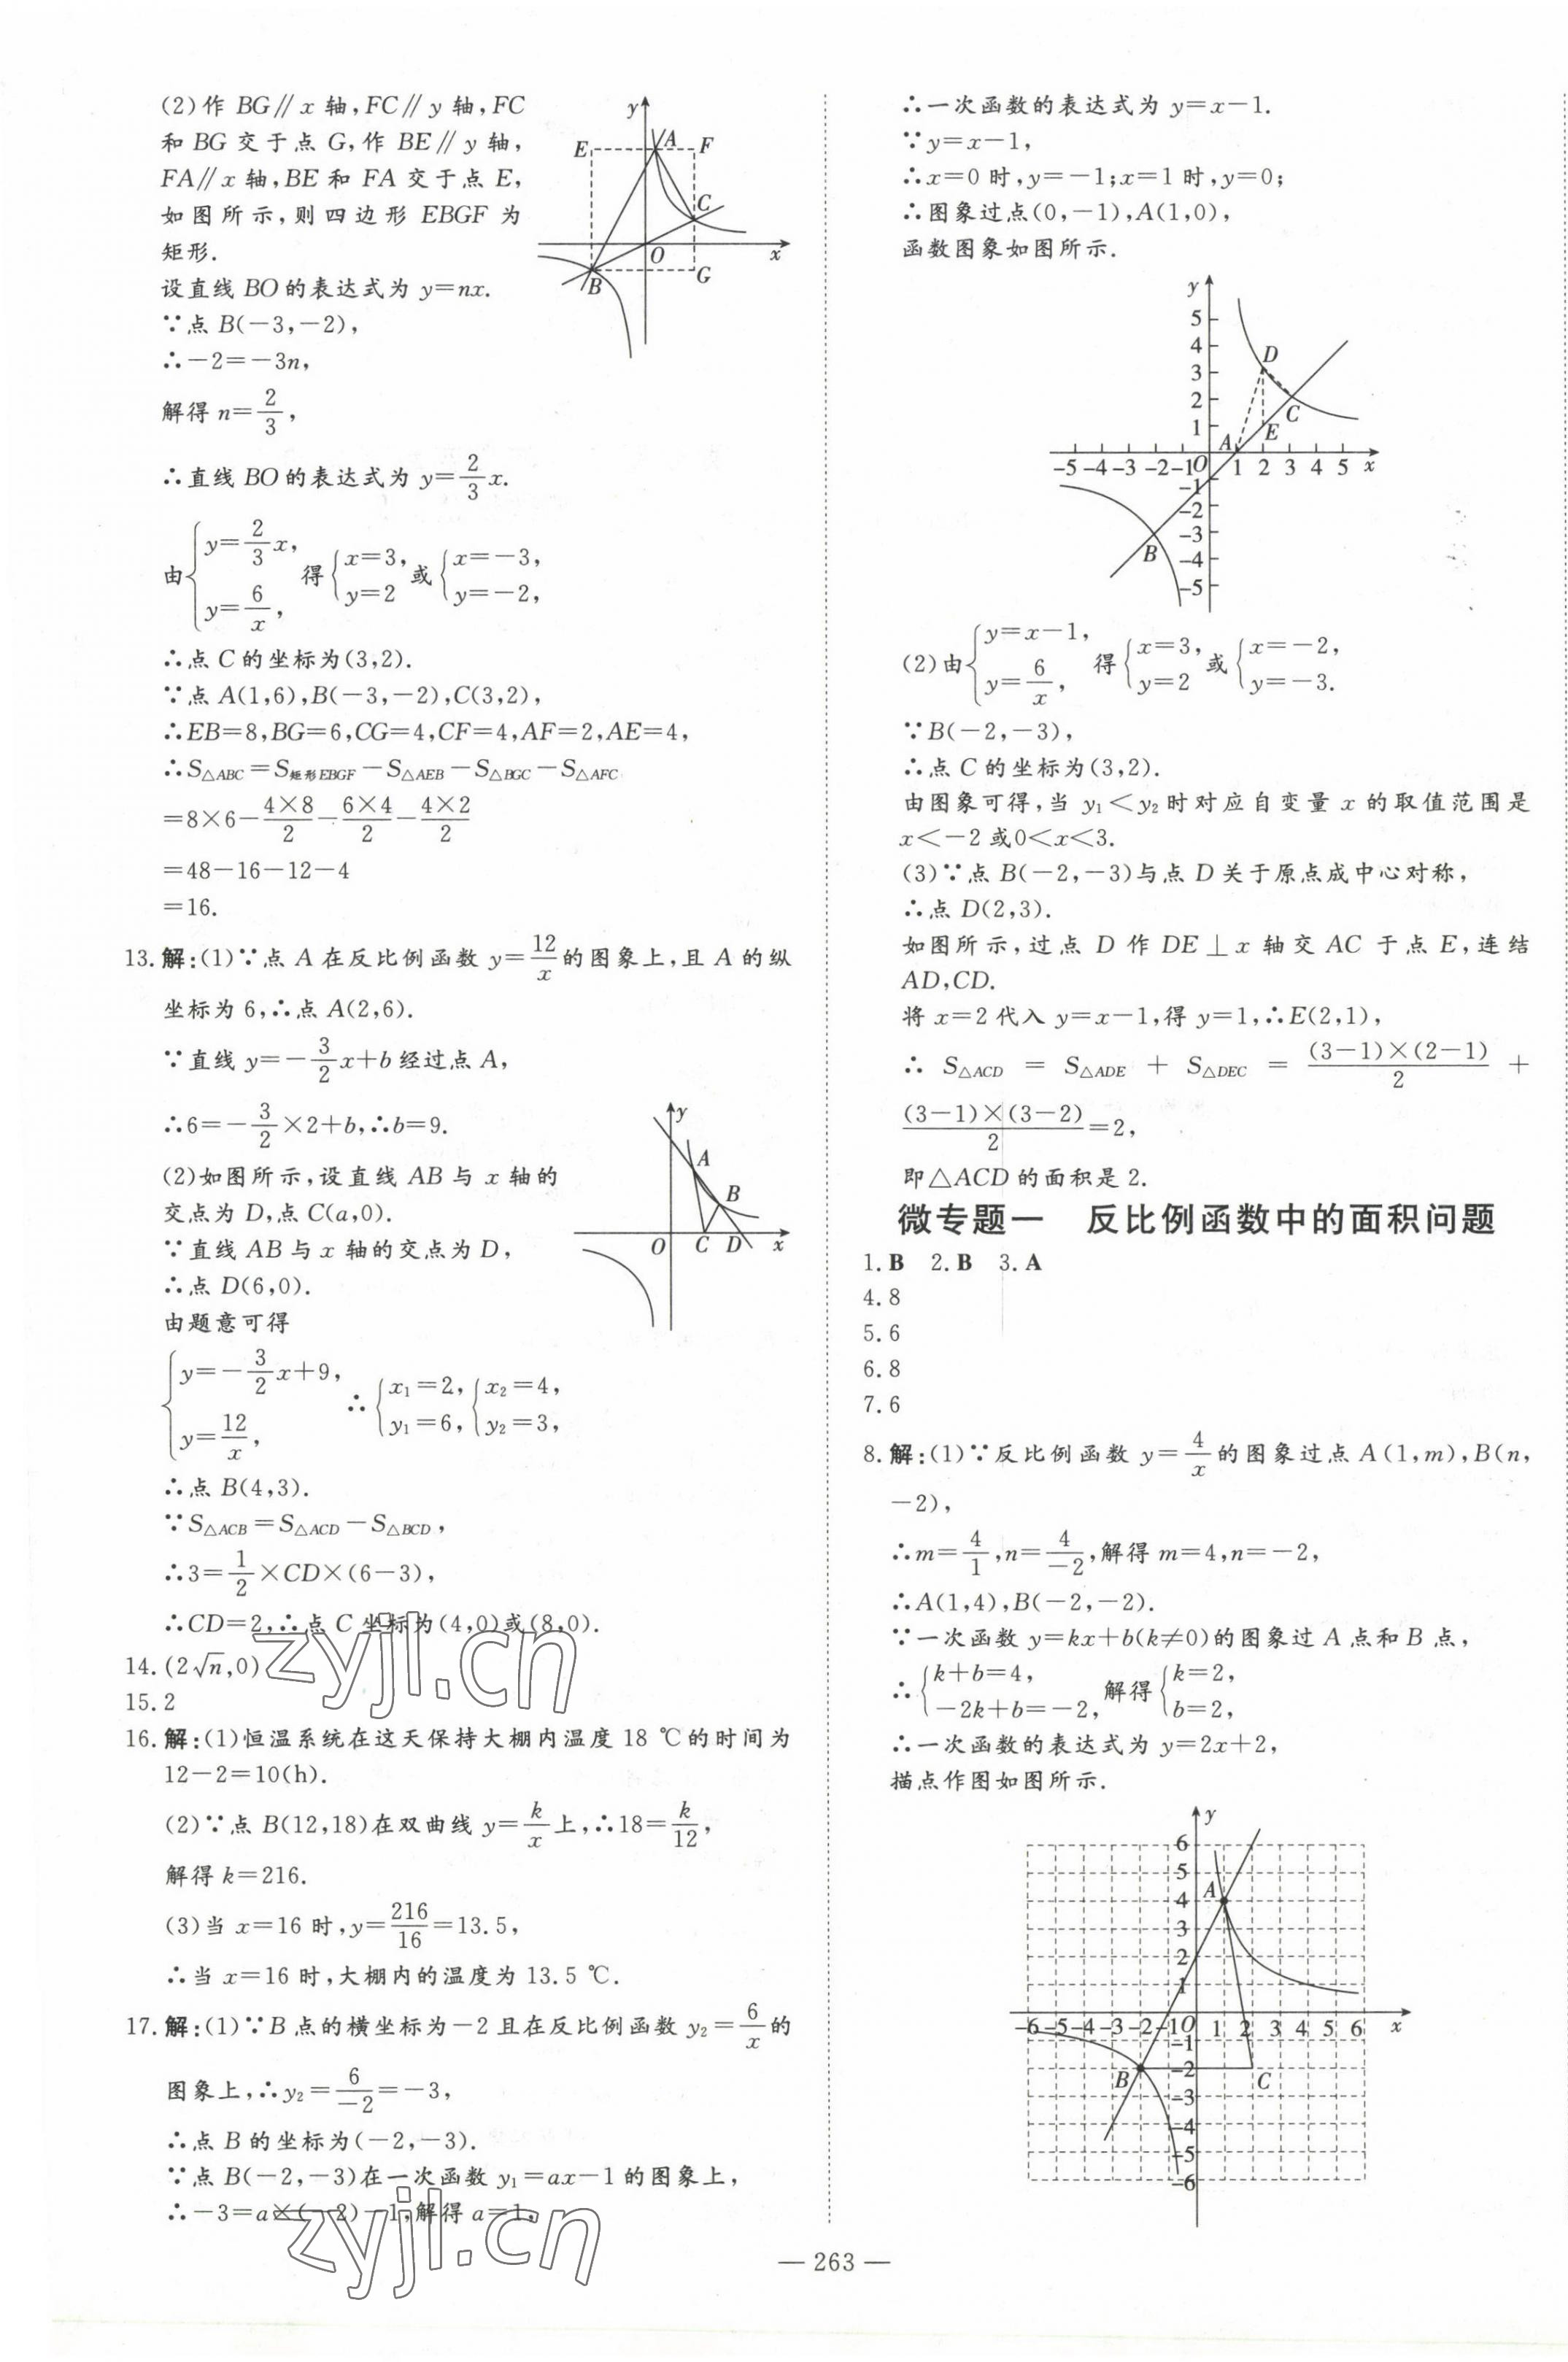 (2)作 BG∥x 轴,FC∥y 轴,FC
和 BG 交于点 G,作 BE∥y 轴,
FA∥x 轴,BE 和 FA 交于点 E,
如图所示,则四边形 EBGF 为
矩形.
设直线 BO 的表达式为 y=nx.
∵点 B(−3,−2),
∴−2=−3n,
解得 n=2/3,
∴直线 BO 的表达式为 y=2/3x.
由{y=2/3x, y=6/x, 得{x=3, y=2 或{x=−3, y=−2,
∴点 C 的坐标为(3,2).
∵点 A(1,6),B(−3,−2),C(3,2),
∴EB=8,BG=6,CG=4,CF=4,AF=2,AE=4,
∴S△ABC=S矩形EBGF−S△AEB−S△BGC−S△AFC
=8×6−4×8/2−6×4/2−4×2/2
=48−16−12−4
=16.
y
E
A
F
C
O
x
B
G
13.解:(1)∵点 A 在反比例函数 y=12/x的图象上,且 A 的纵
坐标为 6,∴点 A(2,6).
∵直线 y=−3/2x+b 经过点 A,
∴6=−3/2×2+b,∴b=9.
(2)如图所示,设直线 AB 与 x 轴的
交点为 D,点 C(a,0).
∵直线 AB 与 x 轴的交点为 D,
∴点 D(6,0).
由题意可得
{y=−3/2x+9, y=12/x, ∴{x₁=2, y₁=6,{x₂=4, y₂=3,
∴点 B(4,3).
∵S△ACB=S△ACD−S△BCD,
∴3=1/2×CD×(6−3),
∴CD=2,∴点 C 坐标为(4,0)或(8,0).
y
A
B
O C D x
14.(2√n,0)
15.2
16.解:(1)恒温系统在这天保持大棚内温度 18 ℃的时间为
12−2=10(h).
(2)∵点 B(12,18)在双曲线 y=k/x上,∴18=k/12,
解得 k=216.
(3)当 x=16 时,y=216/16=13.5,
∴当 x=16 时,大棚内的温度为 13.5 ℃.
17.解:(1)∵B 点的横坐标为−2 且在反比例函数 y₂=6/x的
图象上,∴y₂=6/−2=−3,
∴点 B 的坐标为(−2,−3).
∵点 B(−2,−3)在一次函数 y₁=ax−1 的图象上,
∴−3=a×(−2)−1,解得 a=1,
zyjl.cn
zyjl.cn
∴一次函数的表达式为 y=x−1.
∵y=x−1,
∴x=0 时,y=−1;x=1 时,y=0;
∴图象过点(0,−1),A(1,0),
函数图象如图所示.
y
5
4
3
2
1
D
C
E
A
−5 −4 −3 −2 −1 O 1 2 3 4 5 x
−1
−2
−3
−4
−5
B
(2)由{y=x−1, y=6/x, 得{x=3, y=2 或{x=−2, y=−3.
∵B(−2,−3),
∴点 C 的坐标为(3,2).
由图象可得,当 y₁<y₂ 时对应自变量 x 的取值范围是
x<−2 或0<x<3.
(3)∵点 B(−2,−3)与点 D 关于原点成中心对称,
∴点 D(2,3).
如图所示,过点 D 作 DE⊥x 轴交 AC 于点 E,连结
AD,CD.
将 x=2 代入 y=x−1,得 y=1,∴E(2,1),
∴ S△ACD = S△ADE + S△DEC = (3−1)×(2−1)/2 +
(3−1)×(3−2)/2=2,
即△ACD 的面积是 2.
微专题一 反比例函数中的面积问题
1.B 2.B 3.A
4.8
5.6
6.8
7.6
8.解:(1)∵反比例函数 y=4/x的图象过点 A(1,m),B(n,
−2),
∴m=4/1,n=4/−2,解得 m=4,n=−2,
∴A(1,4),B(−2,−2).
∵一次函数 y=kx+b(k≠0)的图象过 A 点和 B 点,
∴{k+b=4, −2k+b=−2, 解得{k=2, b=2,
∴一次函数的表达式为 y=2x+2,
描点作图如图所示.
y
6
5
4
3
2
1
A
−6 −5 −4 −3 −2 −1 O 1 2 3 4 5 6 x
−1
−2
−3
−4
−5
−6
B
C
— 263 —